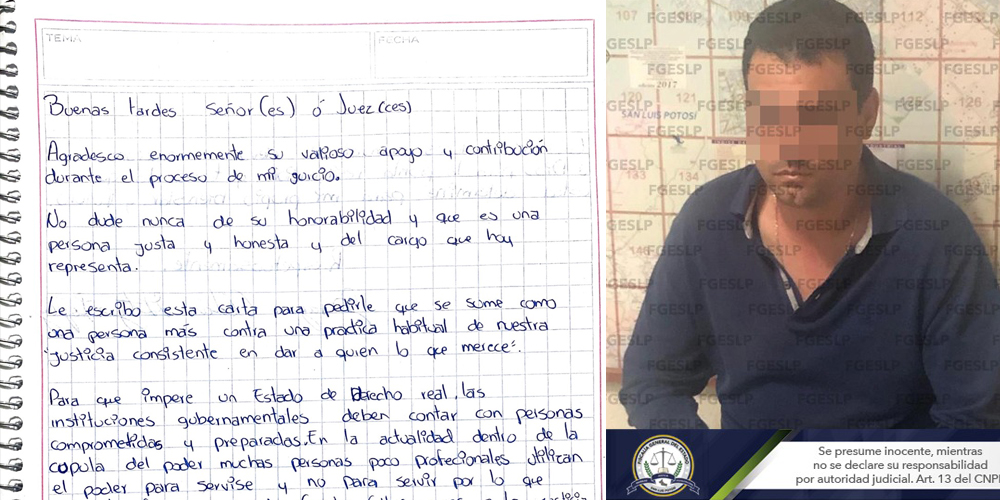 TEMA
FECHA
Buenas tardes señor(es) ó Juez(ces)
Agradesco enormemente su valioso apoyo y contribución
durante el proceso de mi guicio.
No dude nunca de su honorabilidad y que es una
persona justa y honesta y del cargo que hoy
representa.
Le escribo esta carta para pedirle que se sume como
una persona más contra una practica habitual de nuestra
"justicia consistente en dar a quien lo que merece".
Para que impere un Estado de Derecho real, las
instituciones gubernamentales deben contar con personas
comprometidas y preparadas. En la actualidad dentro de la
copula del poder muchas personas poco profecionales utilitan
el poder para servise y no para servir por lo que
107 FGESLP 109 FGESLP 112 FGESLP
GESLP FGESLP FGESLP
FGESLP FGESLP FGESLP
2017
120 121 126
SAN LUIS POTOSÍ
133 134
146
FISCALÍA GENERAL DEL ESTADO
Se presume inocente, mientras
no se declare su responsabilidad
por autoridad judicial. Art. 13 del CNP